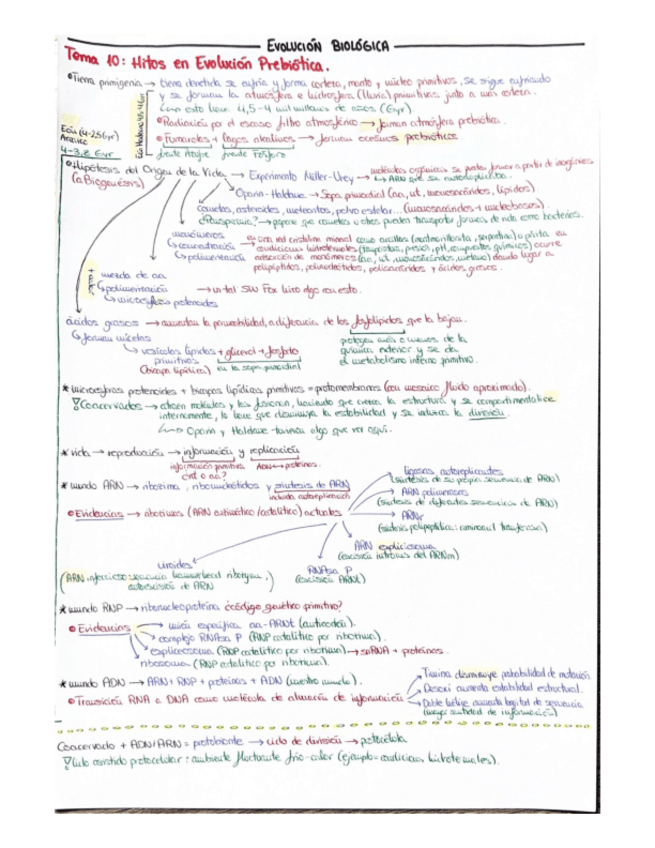 EVOLUCIÓN BIOLÓGICA
Tema 10: Hitos en Evolución Prebiótica.
Tierra primigenia → tierra derretida se enfría y forma corteza, manto y núcleo primitivos, se sigue enfriando
y se forman la atmósfera e hidrosfera (lluvia) primitivas junto a más corteza.
esto tiene 4,5-4 mil millones de años (Gyr)
Radiación por el escaso filtro atmosférico → forman atmósfera prebiótica.
Fumarolas + lagos alcalinos → forman océanos prebióticos
fuente Azufre fuente Fósforo
4-3,8 Gyr
Hipótesis del Origen de la Vida → Experimento Miller-Urey → moléculas orgánicas se pueden formar a partir de inorgánicas
(aBiogenésis)
Oparin-Haldane → Sopa primordial (aa, nt, monosacáridos, lípidos)
cometas, asteroides, meteoritos, polvo estelar... (monosacáridos + nucleobases).
¿Panspermia? → propone que cometas u otros pueden transportar formas de vida como bacterias.
monómeros
concentración
polimerización
en una red cristalina mineral como arcillas (montmorillonita, serpentina) o pirita en
condiciones hidrotermales (temperatura, presión, pH, compuestos químicos) ocurre
adsorción de monómeros (aa, nt, monosacáridos, metano) dando lugar a
polipéptidos, polinucleótidos, polisacáridos y ácidos grasos.
mezcla de aa
polimerización → un tal SW Fox hizo algo con esto.
microesferas protenoides
ácidos grasos → aumentan la permeabilidad, a diferencia de los fosfolípidos que la bajan.
forman micelas
vesículas lípidos + glicerol + fosfato
primitivas
(bicapa lipídica) en la sopa primordial
protegen más o menos de la
química exterior y se da
el metabolismo interno primitivo.
* microesferas proteinoides + bicapas lipídicas primitivas = protomembranas (con mosaico fluido aproximado).
Coacervados → atraen moléculas y las fusionan, haciendo que crezca la estructura y se compartimentalice
internamente, lo hace que disminuya la estabilidad y se induzca la división.
Oparin y Haldane tuvieron algo que ver aquí.
* vida → reproducción → información y replicación
información primitiva ADN → proteínas.
¿nt o aa?
* mundo ARN → ribozima, ribonucleótidos y síntesis de ARN
incluida autoreplicación
ligasas autoreplicantes
(síntesis de su propia secuencia de ARN)
ARN polimerasas
(síntesis de diferentes secuencias de ARN)
Evidencias → ribozimas (ARN autimático/catalítico) actuales
ARNr
(síntesis polipeptídica: aminoacil transferasa)
ARN espliciosoma
(escisión intrones del ARNm)
RNAsa P
(escisión ARNt)
viroides
(ARN infeccioso: secuencia hammerhead ribozyme,
autoescisión de ARN)
* mundo RNP → ribonucleoproteína ¿código genético primitivo?
Evidencias → unión específica aa-ARNt (anticodón).
complejo RNAsa P (RNP catalítico por ribozima).
espliceosoma (RNP catalítico por ribozima) → snRNA + proteínas.
ribosoma (RNP catalítico por ribozima).
* mundo ADN → ARN + RNP + proteínas + ADN (nuestro mundo).
Transición RNA a DNA como molécula de almacén de información
Timina disminuye probabilidad de mutación
Desoxi aumenta estabilidad estructural.
Doble hélice aumenta longitud de secuencia
(mayor cantidad de información)
Coacervado + ADN/ARN = protobionte → ciclo de división → protocélula
ciclo asistido protocelular: ambiente fluctuante frío-calor (ejemplo = condiciones hidrotermales).